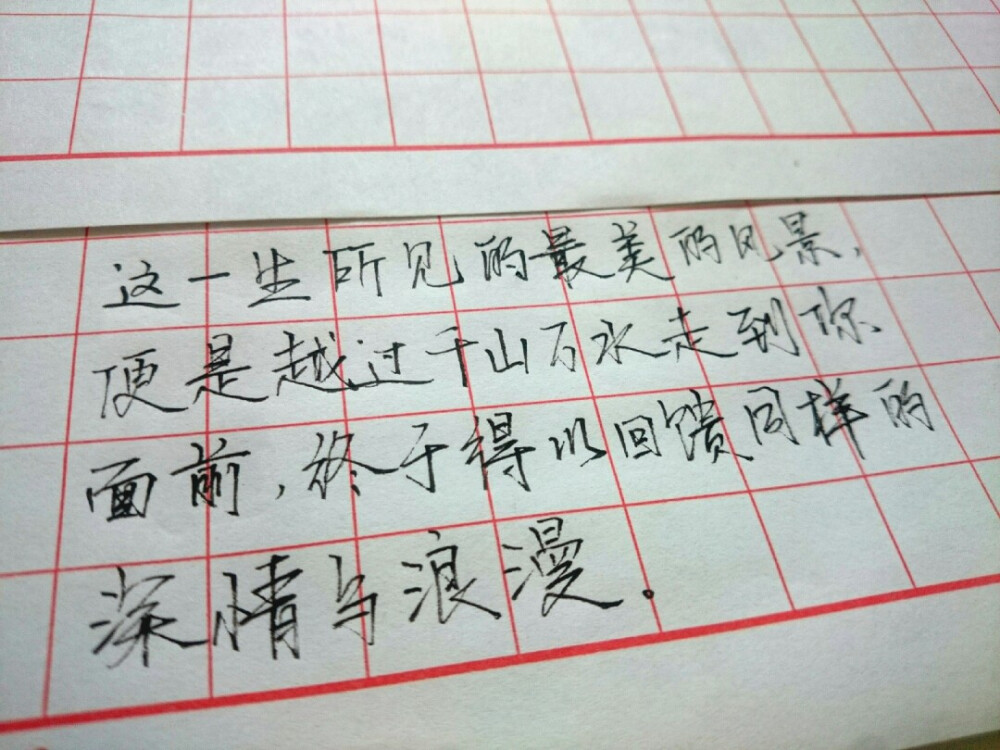 这一生所见的最美的风景，
便是越过千山万水走到你
面前，终于得以回馈同样的
深情与浪漫。